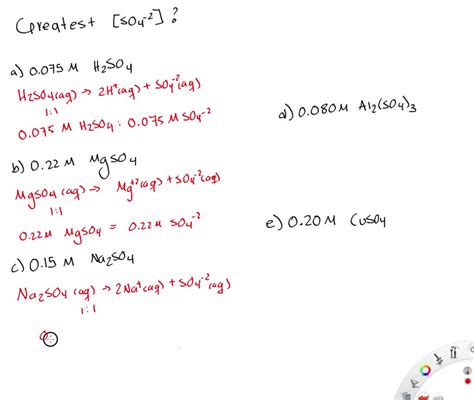 Greatest [SO4⁻²] ?
a) 0.075 M H2SO4
H2SO4(aq) → 2H⁺(aq) + SO4⁻²(aq)
1:1
0.075 M H2SO4 : 0.075 M SO4⁻²
b) 0.22 M MgSO4
MgSO4 (aq) → Mg⁺²(aq) + SO4⁻²(aq)
1:1
0.22M MgSO4 = 0.22M SO4⁻²
c) 0.15 M Na2SO4
Na2SO4 (aq) → 2Na⁺(aq) + SO4⁻²(aq)
1:1
0
d) 0.080M Al2(SO4)3
e) 0.20M CuSO4